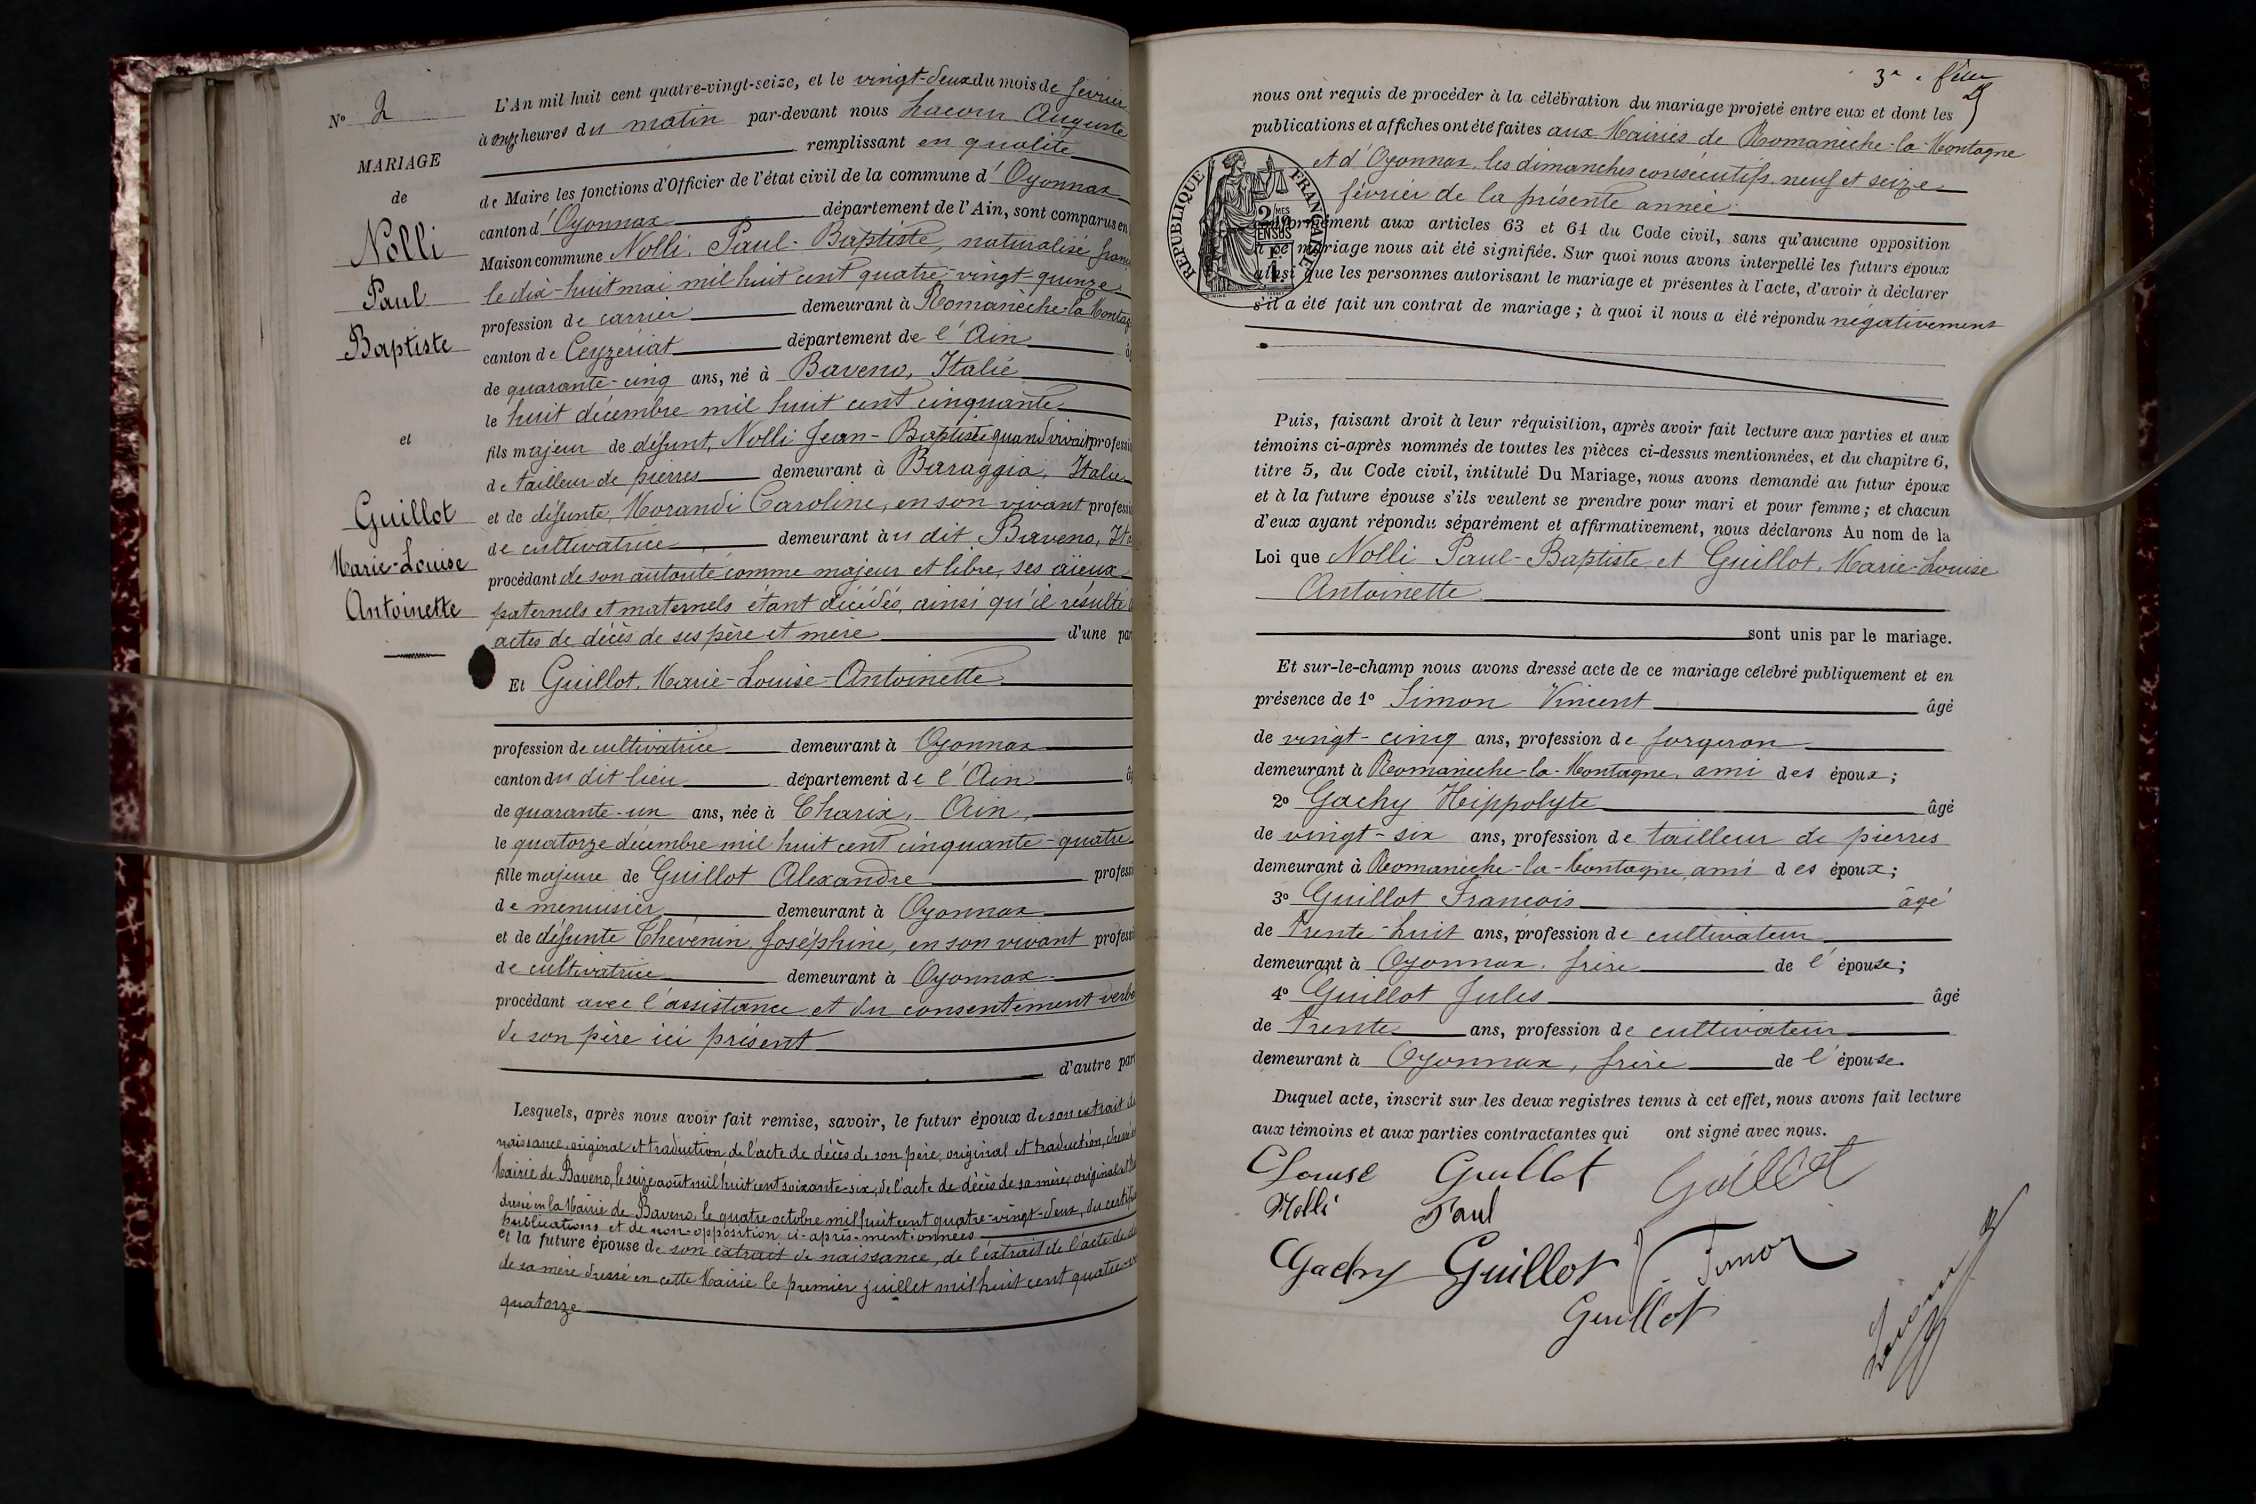 N° 2
MARIAGE
de
Nolli
Paul
Baptiste
et
Guillot
Marie-Louise
Antoinette
L'An mil huit cent quatre-vingt-seize, et le vingt-deux du mois de février
à onze heures du matin par-devant nous Auguste
remplissant en qualité
de Maire les fonctions d'Officier de l'état civil de la commune d'Oyonnax
canton d'Oyonnax département de l'Ain, sont comparus en
Maison commune Nolli, Paul-Baptiste, naturalisé
le dix-huit mai mil huit cent quatre-vingt-quinze
profession de carrier demeurant à Romanèche-la-Montag
canton de Ceyzériat département de l'Ain
de quarante-cinq ans, né à Baveno, Italie
le huit décembre mil huit cent cinquante
fils majeur de défunt, Nolli Jean-Baptiste quand vivait professi
de tailleur de pierres demeurant à Baraggia, Italie
et de défunte, Morandi Caroline, en son vivant professi
de cultivatrice, demeurant au dit Baveno, Ita
procédant de son autorité comme majeur et libre, ses aïeux
paternels et maternels étant décédés, ainsi qu'il résulte
actes de décès de ses père et mère d'une par
Et Guillot, Marie-Louise-Antoinette
profession de cultivatrice demeurant à Oyonnax
canton du dit lieu département de l'Ain
de quarante-un ans, née à Charix, Ain,
le quatorze décembre mil huit cent cinquante-quatre
fille majeure de Guillot Alexandre professi
de menuisier demeurant à Oyonnax
et de défunte Chevenin Joséphine, en son vivant professi
de cultivatrice demeurant à Oyonnax
procédant avec l'assistance et du consentement verba
de son père ici présent
d'autre part
Lesquels, après nous avoir fait remise, savoir, le futur époux de son extrait de
naissance, original et traduction, de l'acte de décès de son père, original et traduction, dressé
Mairie de Baveno, le seize août mil huit cent soixante-six, de l'acte de décès de sa mère, original et
dressé en la Mairie de Baveno, le quatre octobre mil huit cent quatre-vingt-deux, du certific
publications et de non-opposition ci-après-mentionnées
et la future épouse de son extrait de naissance, de l'extrait de l'acte de
de sa mère dressé en cette Mairie le premier juillet mil huit cent quatre-v
quatorze
nous ont requis de procéder à la célébration du mariage projeté entre eux et dont les
publications et affiches ont été faites aux Mairies de Romanèche-la-Montagne
et d'Oyonnax, les dimanches consécutifs, neuf et seize
février de la présente année
REPUBLIQUE FRANÇAISE
conformément aux articles 63 et 64 du Code civil, sans qu'aucune opposition
à ce mariage nous ait été signifiée. Sur quoi nous avons interpellé les futurs époux
ainsi que les personnes autorisant le mariage et présentes à l'acte, d'avoir à déclarer
s'il a été fait un contrat de mariage; à quoi il nous a été répondu négativement
Puis, faisant droit à leur réquisition, après avoir fait lecture aux parties et aux
témoins ci-après nommés de toutes les pièces ci-dessus mentionnées, et du chapitre 6,
titre 5, du Code civil, intitulé Du Mariage, nous avons demandé au futur époux
et à la future épouse s'ils veulent se prendre pour mari et pour femme; et chacun
d'eux ayant répondu séparément et affirmativement, nous déclarons Au nom de la
Loi que Nolli Paul-Baptiste et Guillot, Marie-Louise
Antoinette
sont unis par le mariage.
Et sur-le-champ nous avons dressé acte de ce mariage célébré publiquement et en
présence de 1° Simon Vincent âgé
de vingt-cinq ans, profession de forgeron
demeurant à Romanèche-la-Montagne, ami des époux;
2° Gachy Hippolyte âgé
de vingt-six ans, profession de tailleur de pierres
demeurant à Romanèche-la-Montagne, ami des époux;
3° Guillot François âgé
de trente-huit ans, profession de cultivateur
demeurant à Oyonnax, frère de l'épouse;
4° Guillot Jules âgé
de trente ans, profession de cultivateur
demeurant à Oyonnax, frère de l'épouse.
Duquel acte, inscrit sur les deux registres tenus à cet effet, nous avons fait lecture
aux témoins et aux parties contractantes qui ont signé avec nous.
Louise Guillot Guillot
Nolli Paul
Gachy Guillot Simon
Guillot